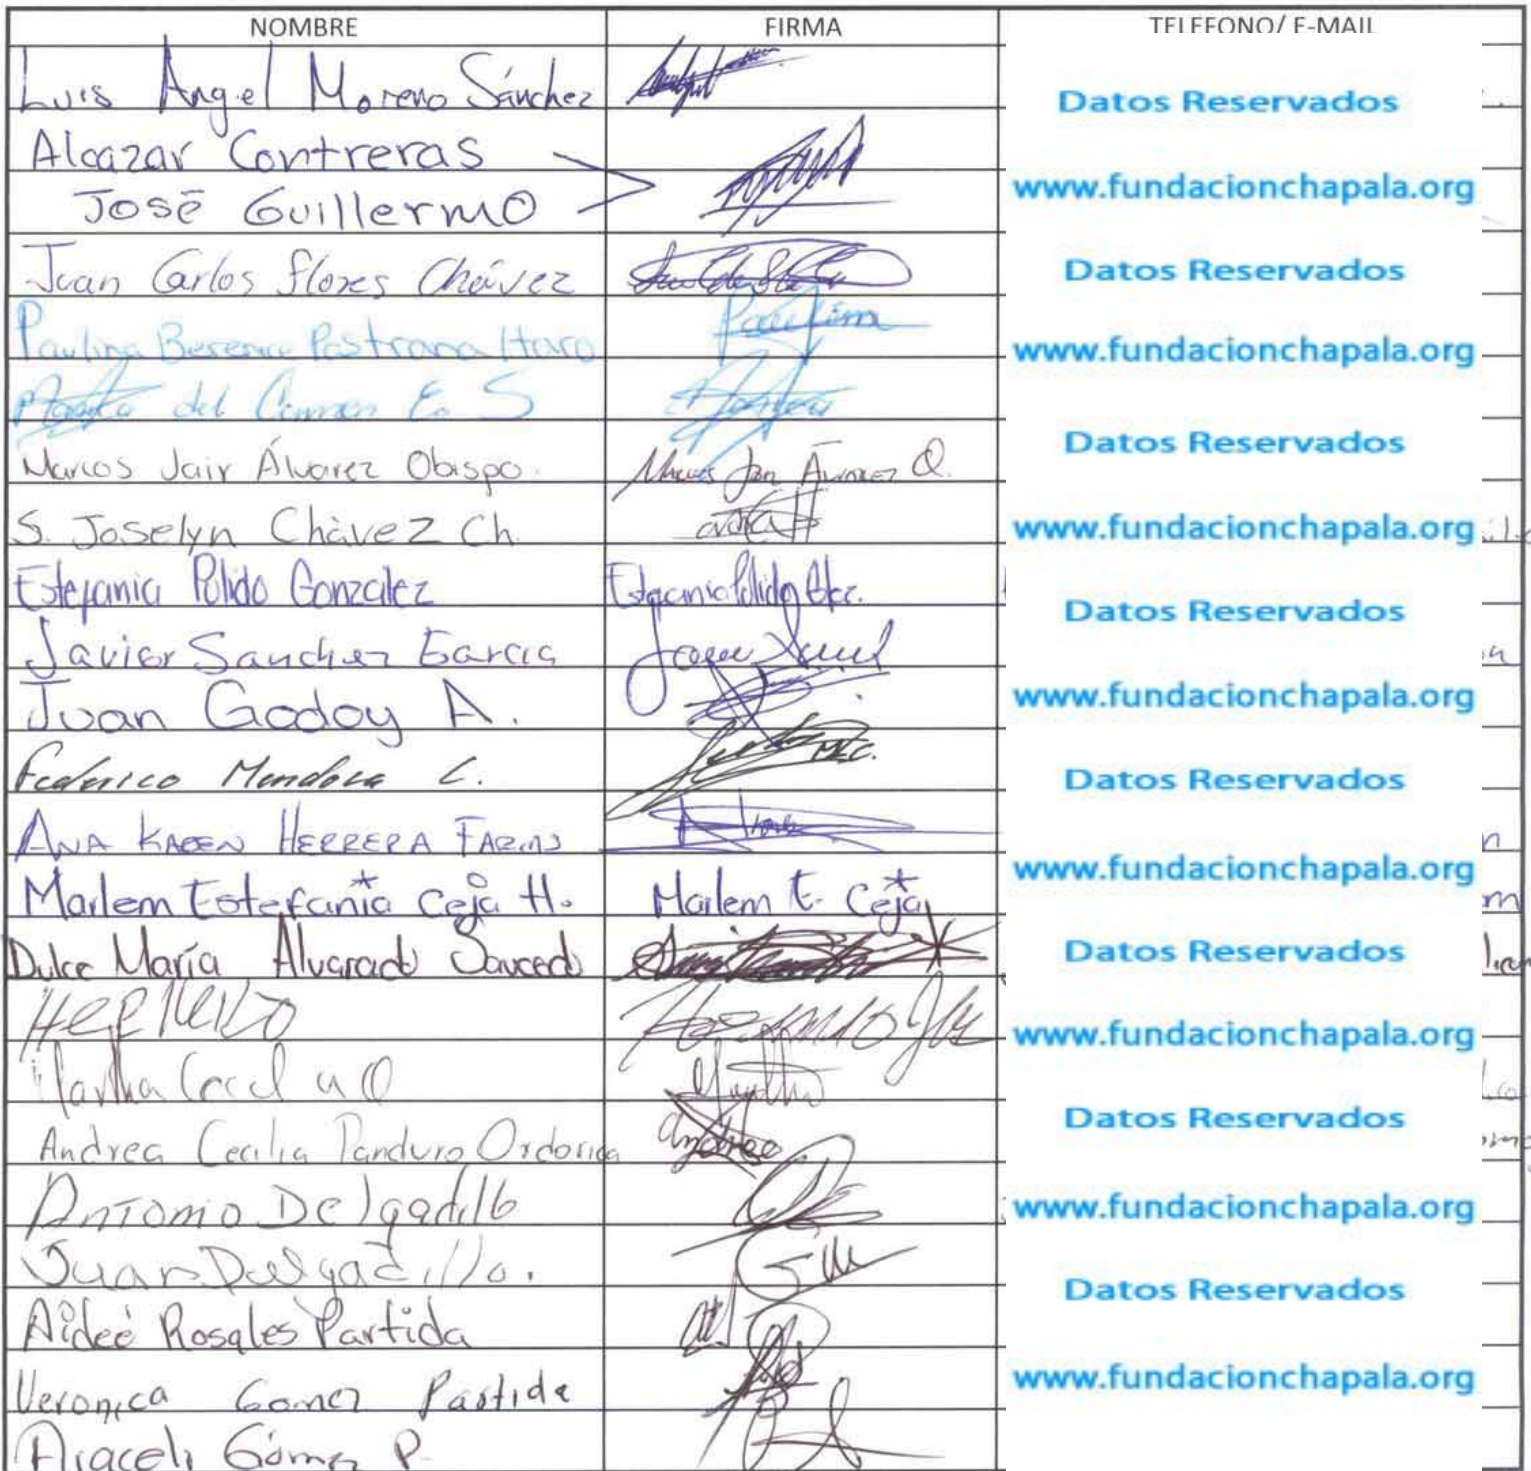 NOMBRE FIRMA TELEFONO/ E-MAIL
Luis Angel Moreno Sánchez
Datos Reservados
Alcazar Contreras
José Guillermo
www.fundacionchapala.org
Juan Carlos flores Chávez
Datos Reservados
Paulina Berenice Pastrana Haro Paulina
www.fundacionchapala.org
del Carmen E. S
Datos Reservados
Marcos Jair Álvarez Obispo. Marcos Jair Álvarez O.
S. Joselyn Chàvez Ch.
www.fundacionchapala.org
Estefania Pulido Gonzalez Estefania Pulido Glez.
Datos Reservados
Javier Sanchez Garcia
Juan Godoy A.
www.fundacionchapala.org
Federico Mendoza C.
Datos Reservados
ANA KAREN HERRERA FARIAS
www.fundacionchapala.org
Marlem Estefania Ceja H. Marlem E. Ceja
Dulce María Alvarado Saucedo
Datos Reservados
www.fundacionchapala.org
Martha
Andrea Cecilia Panduro Ordorica Andrea
Datos Reservados
Antonio Delgadillo
www.fundacionchapala.org
Juan Delgadillo.
Datos Reservados
Aideé Rosales Partida
Veronica Gomez Partida
www.fundacionchapala.org
Araceli Gómez P.